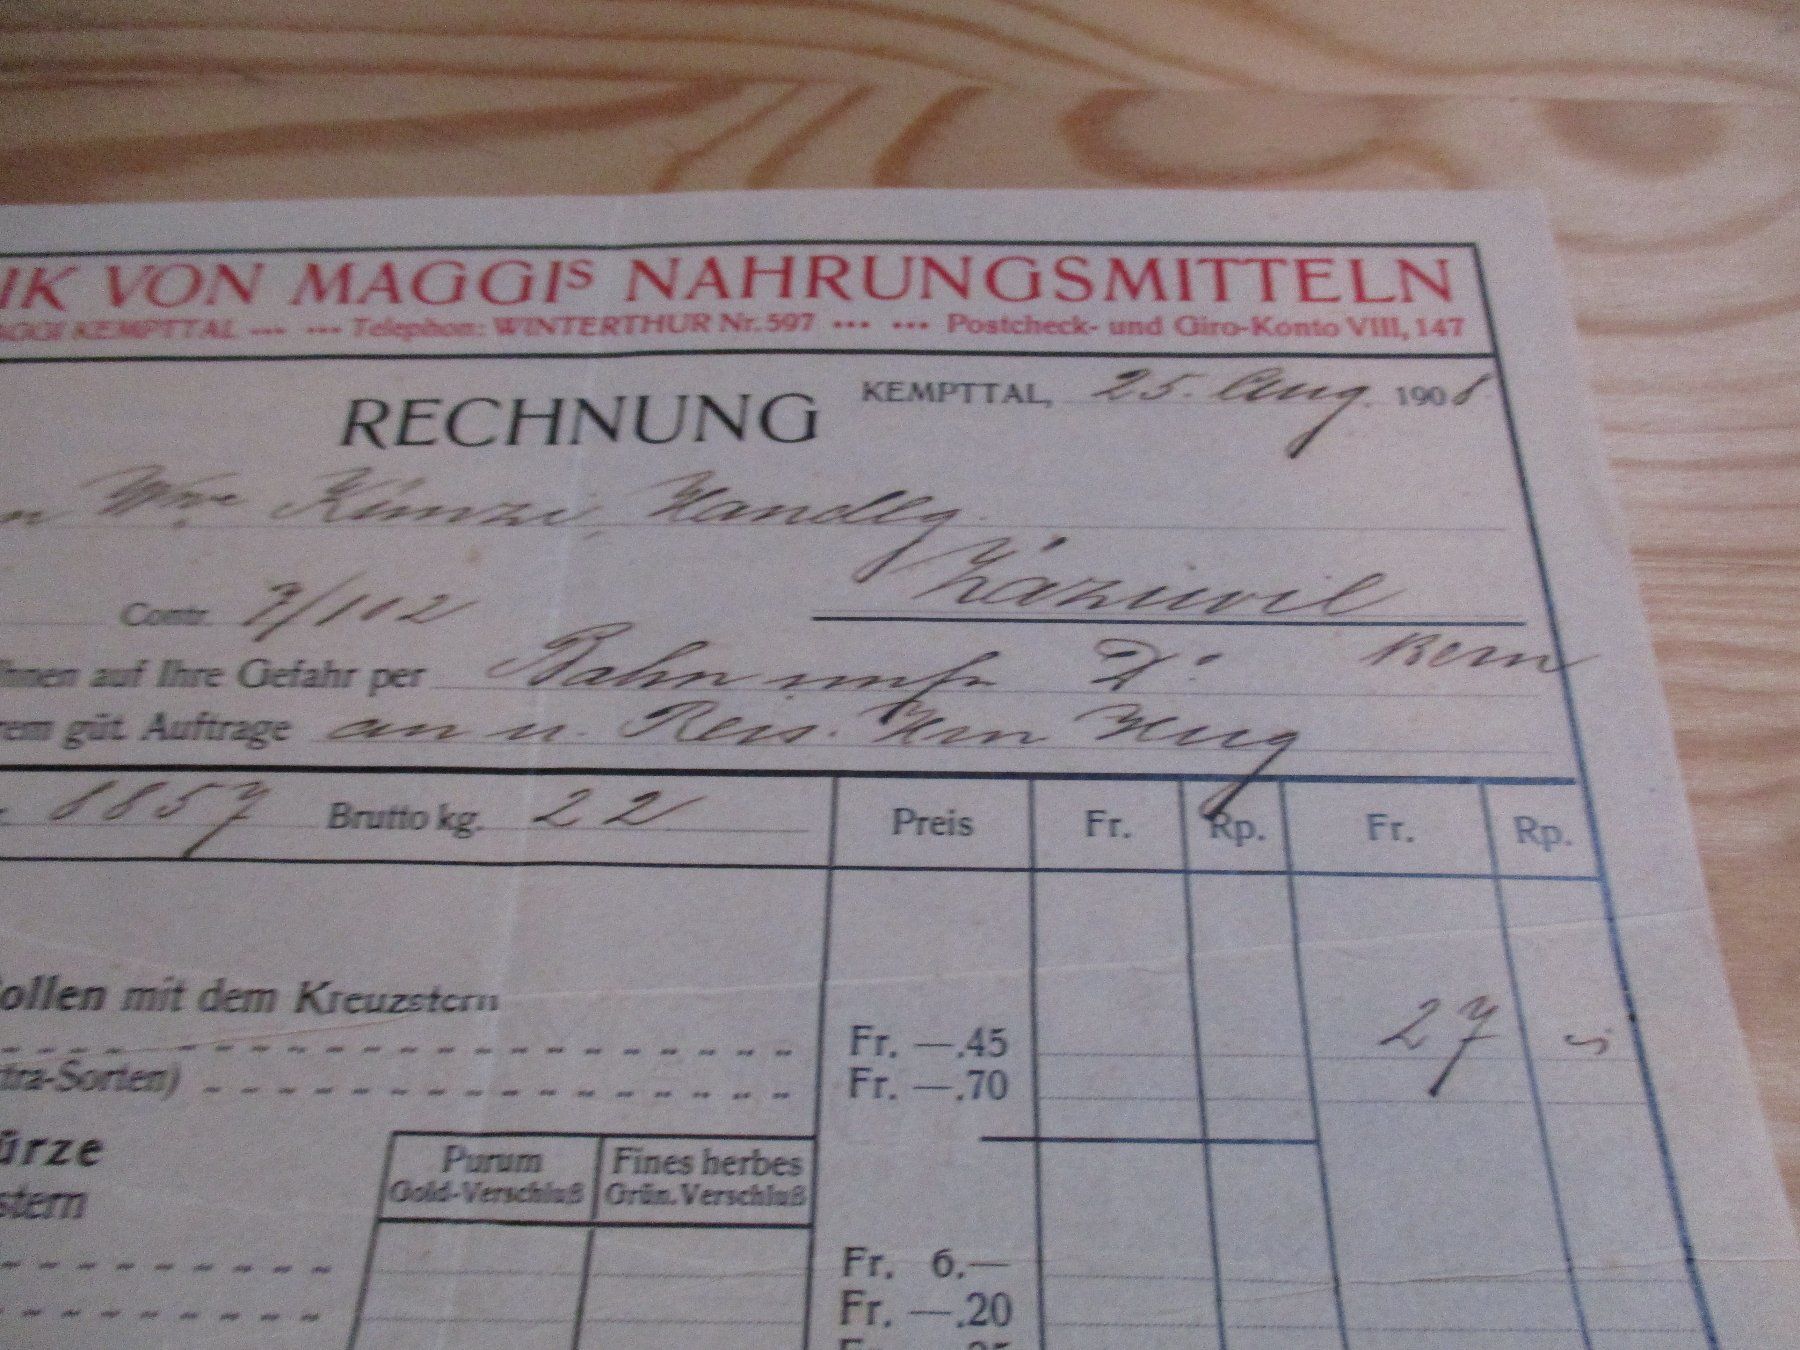 IK VON MAGGIS NAHRUNGSMITTELN
AGGI KEMPTTAL ···· ··· Telephon: WINTERTHUR Nr. 597 ··· ··· Postcheck- und Giro-Konto VIII, 147
RECHNUNG KEMPTTAL, 25. Aug. 1908.
n Wwe Künzi, Handlg.
Zäziwil
Contr. 7/102
Ihnen auf Ihre Gefahr per Bahn unfr. D. Bern
rem güt. Auftrage an u. Reis. Hrn Hug
8857 Brutto kg. 22 Preis Fr. Rp. Fr. Rp.
ollen mit dem Kreuzstern
Fr. —.45 27
xtra-Sorten) Fr. —.70
ürze Purum Fines herbes
stern Gold-Verschluß Grün. Verschluß
Fr. 6.—
Fr. —.20